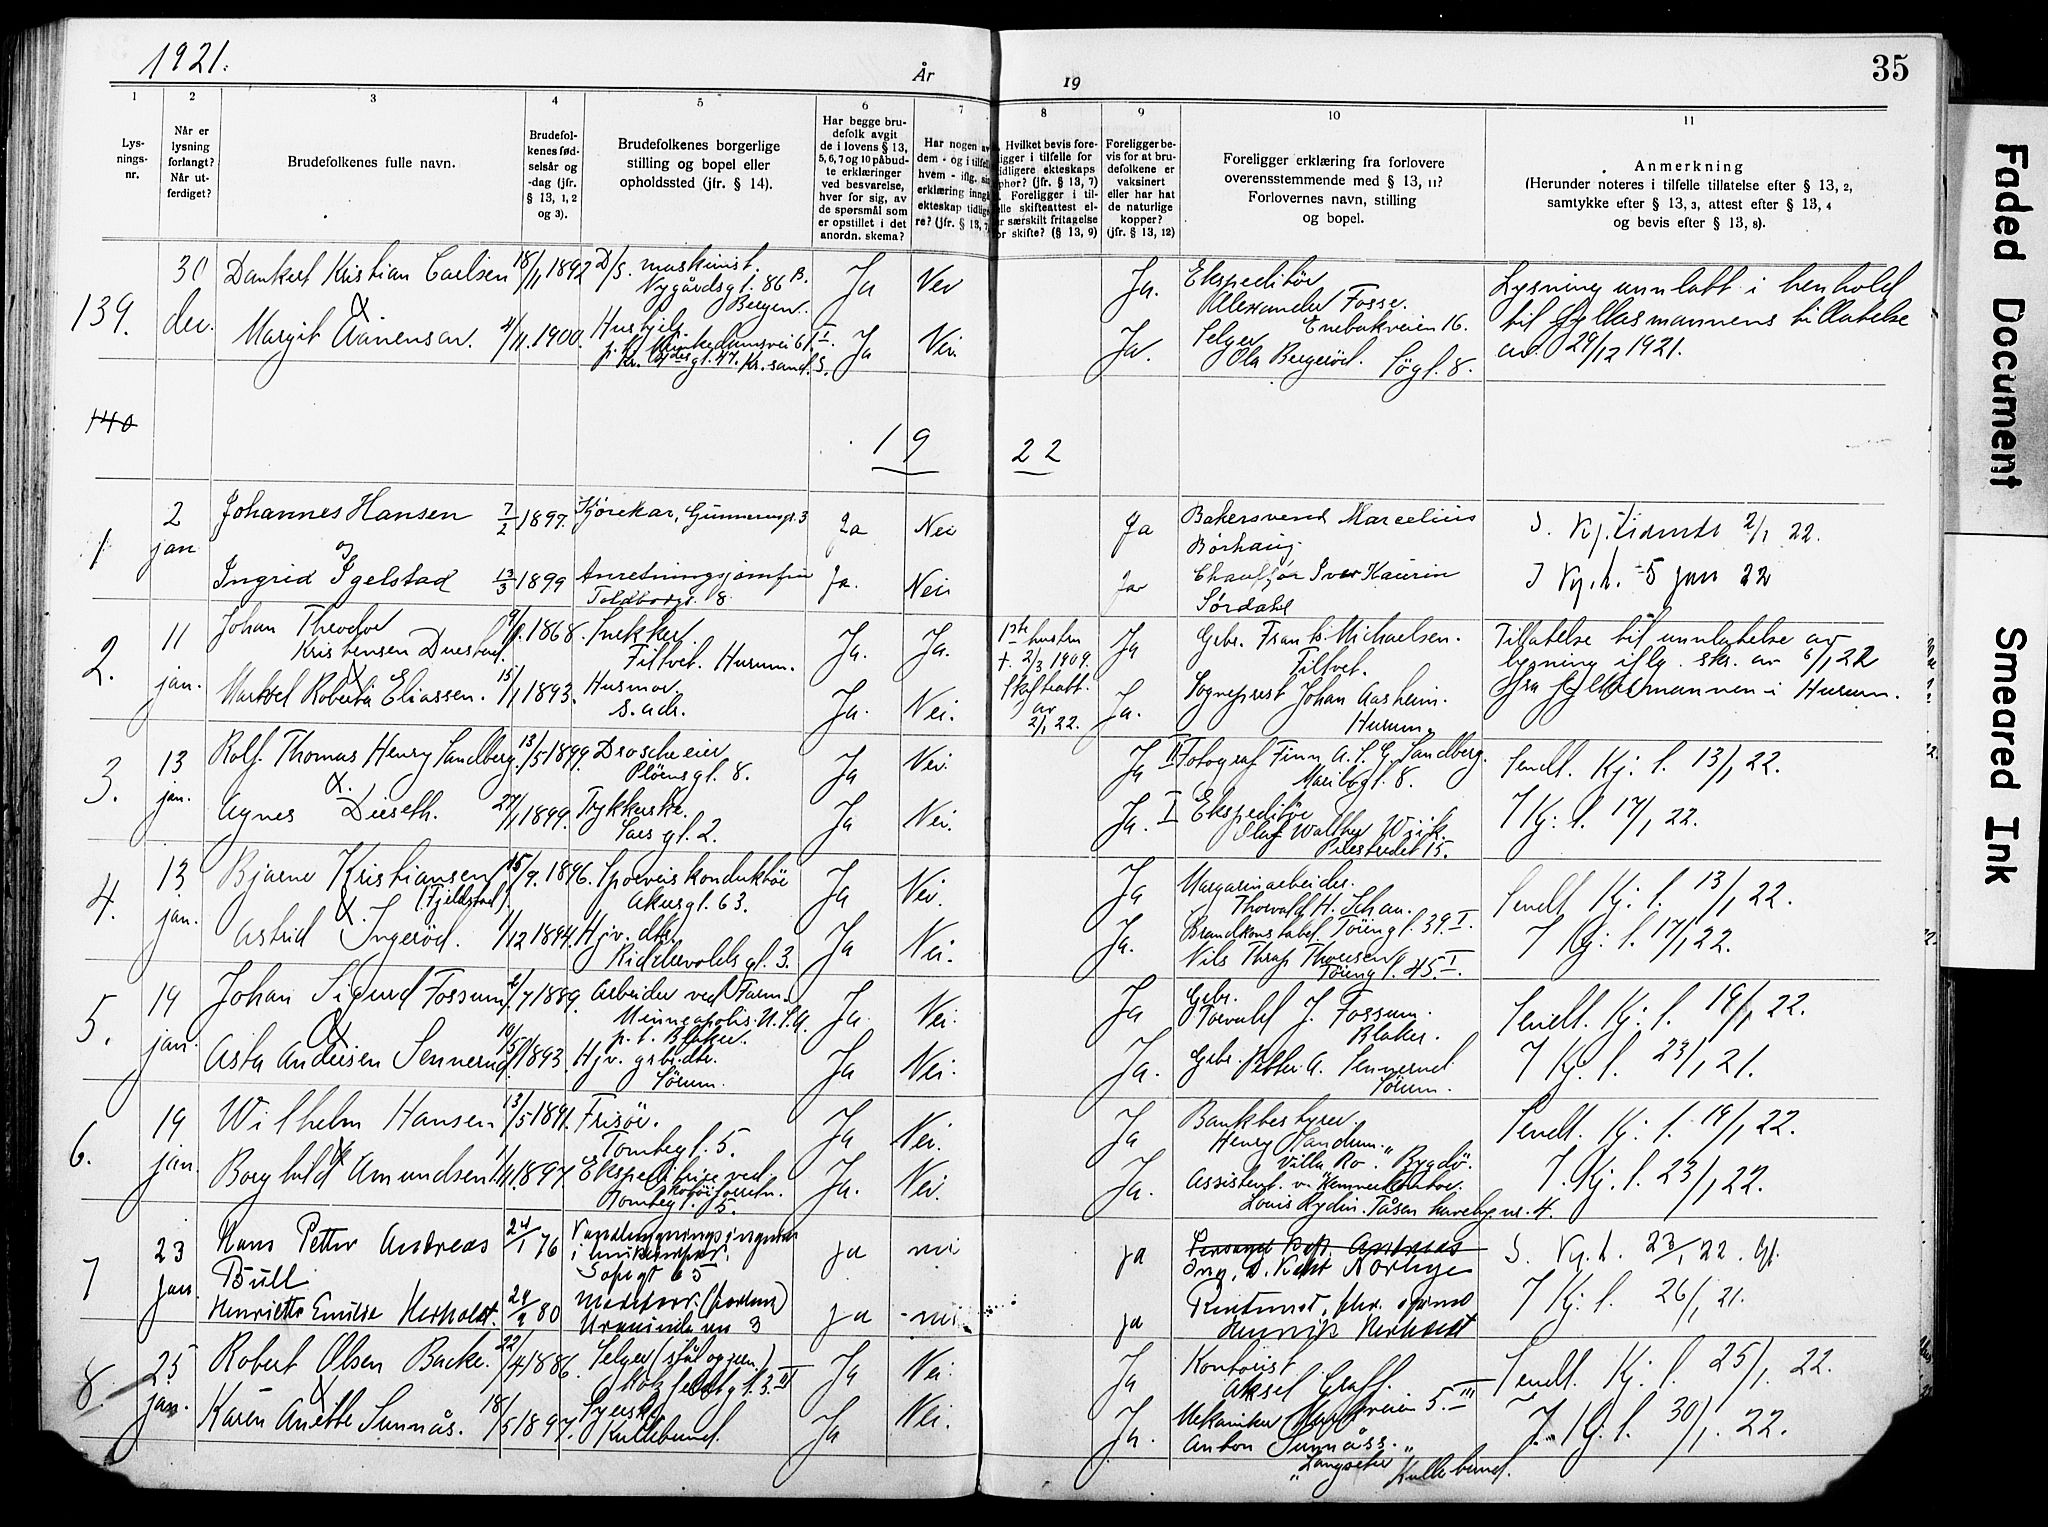 1921.
År
19
35
1
2
3
4
5
6
7
8
9
10
11
Lys-
nings-
nr.
Når er
lysning
forlangt?
Når ut-
ferdiget?
Brudefolkenes fulle navn.
Brudefol-
kenes fød-
selsår og
-dag (jfr.
§ 13, 1, 2
og 3).
Brudefolkenes borgerlige
stilling og bopel eller
opholdssted (jfr. § 14).
Har begge bru-
defolk avgit
de i lovens § 13,
5, 6, 7 og 10 påbud-
te erklæringer
ved besvarelse,
hver for sig, av
de spørsmål som
er opstillet i det
anordn. skema?
Har nogen av
dem - og i tilfel
hvem - iflg. sin
erklæring inngå
ekteskap tidlige
re? (jfr. § 13, 7
Hvilket bevis fore-
ligger i tilfelle for
tidligere ekteskaps
ophør? (jfr. § 13, 7)
Foreligger i til-
felle skifteattest el-
ler særskilt fritagelse
for skifte? (§ 13, 9)
Foreligger be-
vis for at bru-
defolkene er
vaksinert
eller har hat
de naturlige
kopper?
(jfr. § 13, 12)
Foreligger erklæring fra forlovere
overensstemmende med § 13, 11?
Forlovernes navn, stilling
og bopel.
Anmerkning
(Herunder noteres i tilfelle tillatelse efter § 13, 2,
samtykke efter § 13, 3, attest efter § 13, 4
og bevis efter § 13, 8).
139.
30
des.
Dankert Kristian Carlsen
18/11 1892
D/S. maskinist.
Nygårdsgt. 86 B.
Bergen.
Ja
Nei
Ja.
Ekspeditør
Alexander Fosse.
Enebakveien 16.
Lysning unnlatt i henhold
til fylkesmannens tillatelse
av 29/12 1921.
&
Margit Aanensen.
4/11. 1900.
Kr. sand. S.
Ja
Nei.
Ja.
Selger
Ola Bergerød. gt. 8.
140
19 22
1
2
jan
Johannes Hansen
7/2 1897.
Kjørekar, Gunnerusgt. 3
Ja
Nei
Ja
Bakersvend Marcelius
Børhaug.
S. Kj. tidende 2/1 22.
og
Ingrid Igelstad
13/3 1899
Anretningsjomfru
Toldbodgt. 8.
Ja.
Nei
Ja
Chauffør Iver Kaurin
Sørdahl
I Kj. t. 5 jan 22
2.
11
jan.
Johan Theodor
Kristensen Duestad.
1868.
Snekker.
Filtvet. Hurum.
Ja.
Ja.
1ste hustru
+. 2/3 1909.
Skifteatt.
av
2/1 22.
Ja
Gbr. Frants Michaelsen.
Filtvet.
Tillatelse til unnlatelse av
lysning iflg. skr. av 6/1 22
fra fylkesmannen i Hurum.
&
Eliassen.
15/1 1893.
Husmor
s. adr.
Ja.
Nei.
Ja.
Sogneprest Johan Aasheim.
Hurum.
3.
13
jan.
Rolf Thomas Henry Sandberg.
13/5 1899.
Droscheeier
Pløensgt. 8.
Ja
Nei.
Ja
II Fotograf Finn A. S. G. Sandberg.
Maribogt. 8.
Sendt. Kj. t. 13/1 22.
&.
Agnes Dieseth.
27/1 1899.
Trykkerske.
Saxegt. 2.
Ja
Nei.
Ja.
I Ekspeditør
Olaf Walther Wiik.
Pilestredet 15.
I Kj. t. 17/1 22.
4.
13
jan.
Bjarne Kristiansen
(Fjeldstad).
15/9. 1896.
Sporveiskonduktør
Akersgt. 63.
Ja
Nei.
Ja
Margarinarbeider.
Thorvald H. Schau.
Tøiengt. 39. I.
Sendt Kj. t. 13/1 22.
&
Astrid Ingerød.
1/12 1894.
Hjv. dtr.
Riddervoldsgt. 3.
Ja
Nei.
Ja.
Brandkonstabel
Nils Thrap Thoresen
Tøiengt. 45 I.
I Kj. t. 17/1 22.
5.
19
jan.
Johan Sigurd Fossum
/7 1889.
Arbeider ved Farm.
Minneapolis. U.S.A.
p. t. Blaker.
Ja.
Nei.
Ja
Gbr.
Torvald J. Fossum.
Blaker.
Sendt. Kj. t. 19/1 22.
&
Asta Andersen Sennerud.
1893.
Hjv. gbr.dtr.
Sørum.
Ja
Nei.
Ja.
Gbr. Petter A. Sennerud
Sørum.
I Kj. t. 23/1 21.
6.
19
jan.
Wilhelm Hansen
13/5 1891.
Frisør.
Tomtegt. 5.
Ja
Nei.
Ja
Bankbestyrer.
Henry Sandum.
"Villa Ro". Bygdø.
Sendt. Kj. t. 19/1 22.
&
Borghild Amundsen.
1897
Ekspeditrise ved
Tomtegt. 5.
Ja.
Nei.
Ja.
Assistent v. Kemnerkontor.
Louis Rydin. Tåsen haveby nr. 4.
I. Kj. t. 23/1 22.
7
23
jan.
Hans Petter Andreas
Bull
24/1 76
Sofiegt 65
ja
nei
ja
S. Kj. t. 23/1 22.
Henriette Emilie Herholdt.
80
Uranienb. vn 3
ja
nei
ja
Henrik Herholdt
I Kj. t. 26/1 21.
8.
25
jan.
Robert Olsen Bache.
22/4 1886.
Selger (stål og jern.)
Motzfeldtgt. 3. II
Ja
Nei.
Ja
Kontorist
Aksel Graff.
5. III
Sendt. Kj. t. 25/1 22.
&
Karen Anette Sunnås.
18/5 1897.
Syerske
Kullebund.
Ja
Nei.
Ja.
Mekaniker
Anton Sunnåss.
"Langseter" Kullebund.
I Kj. t. 30/1. 22.
Faded Document
Smeared Ink